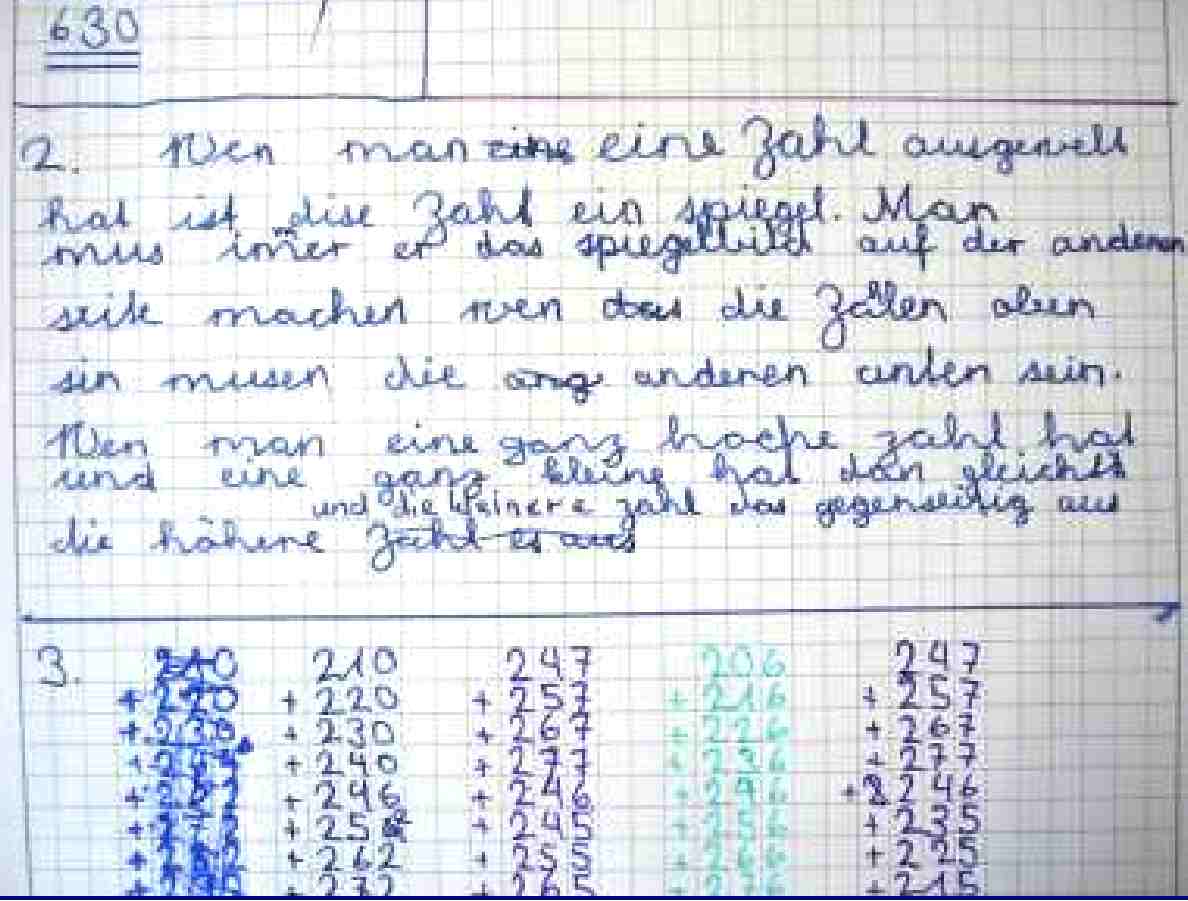 630
2. Wen man eine Zahl ausgewelt
hat ist dise Zahl ein spiegel. Man
mus imer er das spiegelbild auf der anderen
seite machen wen die Zälen oben
sin musen die anderen unten sein.
Wen man eine ganz hoche zahl hat
und eine ganz kleine hat dan gleicht
und die kleinere zahl das gegenseitig aus
die höhere Zahl es aus
3. 210 210 247 206 247
+ 220 + 220 + 257 + 216 + 257
+ 230 + 230 + 267 + 226 + 267
+ + 240 + 277 + 236 + 277
+ + 246 + 246 + 246 + 246
+ + 252 + 245 + 256 + 235
+ + 262 + 255 + 266 + 225
+ + 272 + 265 + 276 + 215